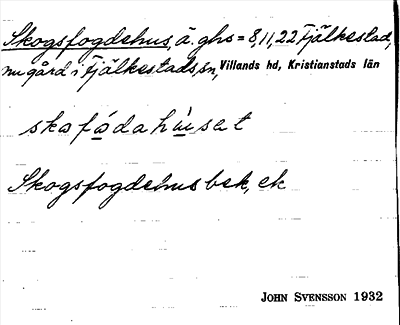 Skogsfogdehus, ä. ghs = 8, 11, 22 Fjälkestad,
nu gård i Fjälkestads sn, Villands hd, Kristianstads län
skofódahùsat
Skogsfogdehus bek, ek
JOHN SVENSSON 1932